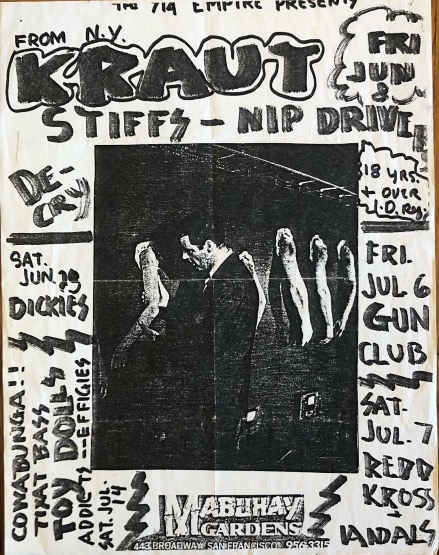 THE 714 EMPIRE PRESENTS
FROM N.Y.
KRAUT
FRI
JUN
8
STIFFS - NIP DRIVE
DE-
CRY
18 YRS.
+ OVER
I.D. Req.
SAT.
JUN.
DICKIES
FRI.
JUL 6
GUN
CLUB
SAT.
JUL. 7
REDD
KROSS
VANDALS
COWABUNGA!!
THAT BASS
TOY DOLLS
ADDICTS -- EFFIGIES
SAT. JUL.
14
MABUHAY
GARDENS
443 BROADWAY SAN FRANCISCO 956-3315